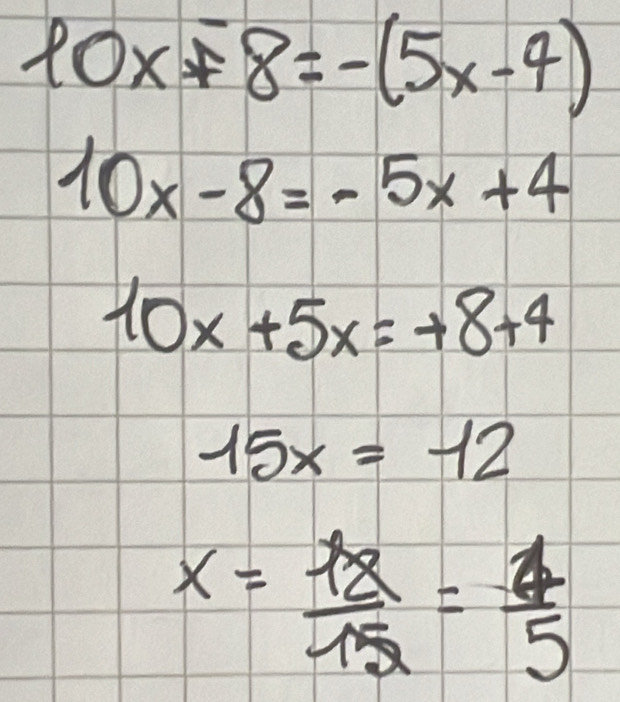 10x - 8 = -(5x - 4)
10x - 8 = - 5x + 4
10x + 5x = +8 + 4
15x = 12
x = 12/15 = 4/5